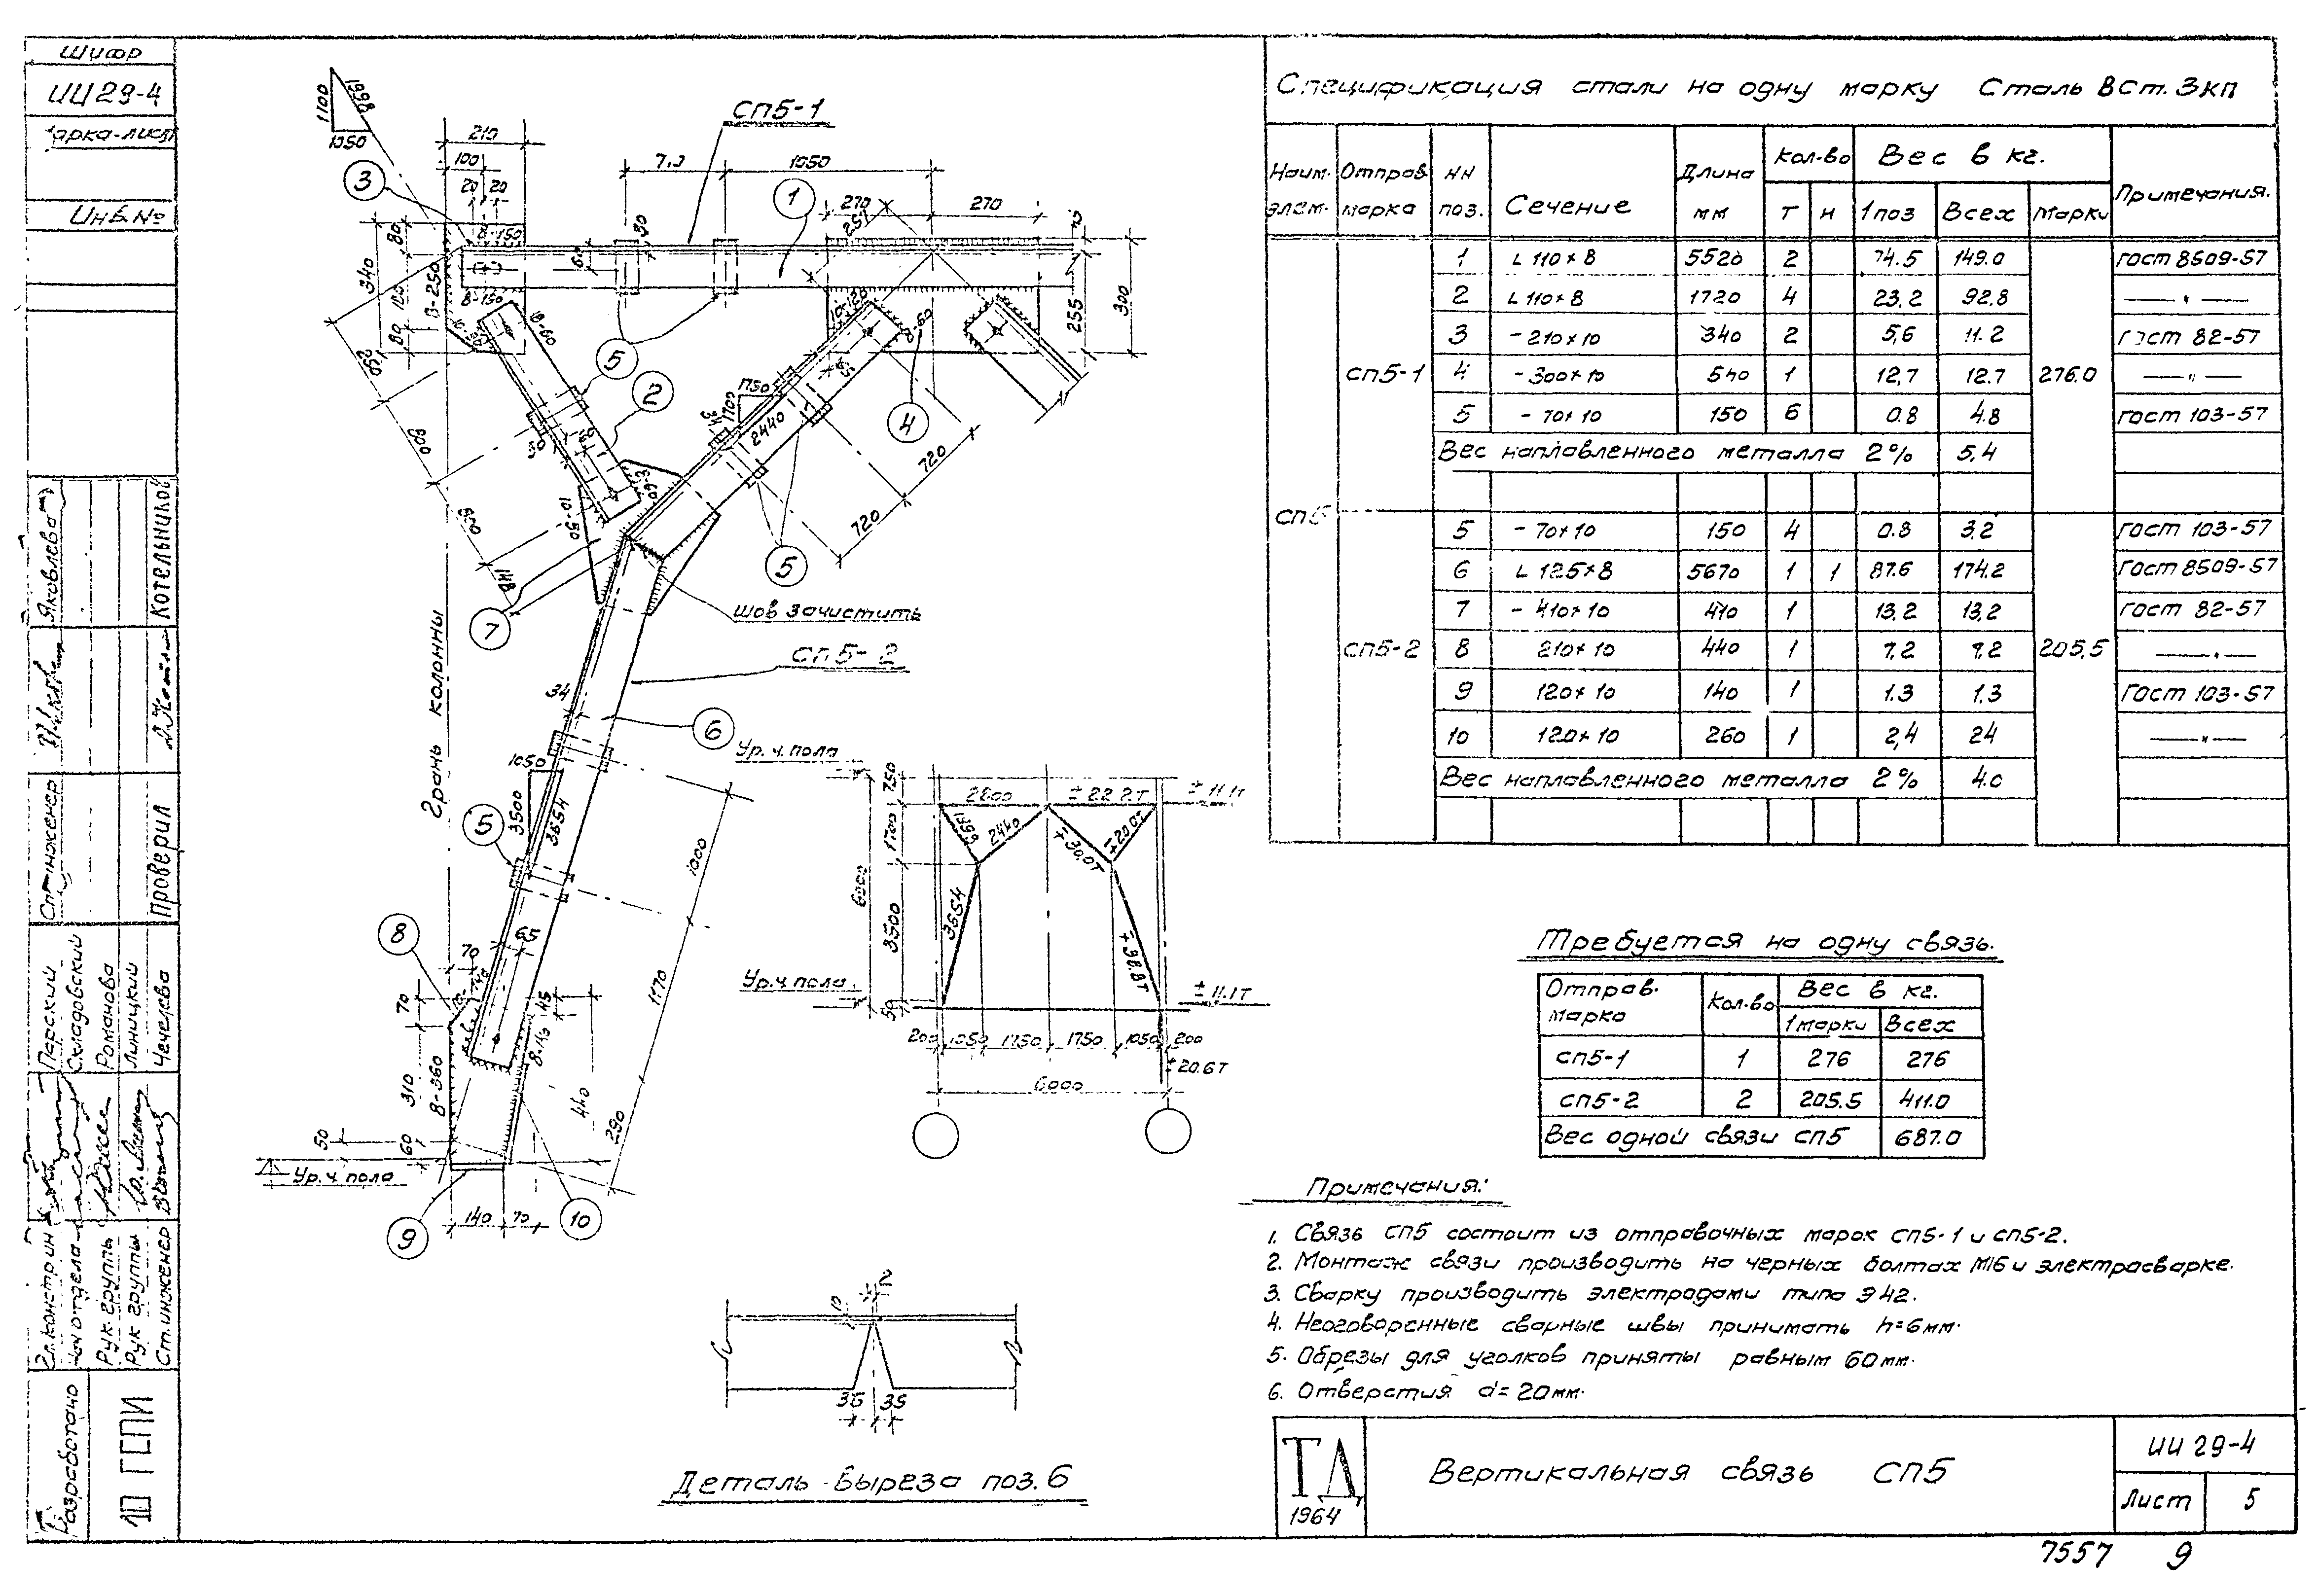 Шифр
ИИ 29-4
арка-лист
Инв.№
Яковлева
Котельников
Ст. инженер
Проверил
Парский
Складовский
Романова
Линницкий
Чечелева
Гл. констр ин
Нач отдела
Рук. группы
Рук группы
Ст. инженер
Разработано
10 ГСПИ
1100
1998
1050
СП5-1
210
100
20 20
7,0
1050
3
1
270
270
257
80
340
120
80
8-150
8-250
8-150
8-60
60
80
255
300
10-120
8-60
250
800
5
2
1150
1700
2440
4
720
720
5
8-60
10-50
7
шов зачистить
СП5-2
Грань колонны
34
6
1050
3500
3654
5
1000
8
70
65
140
70
45
1170
310
8-360
440
290
50
60
Ур. ч. пола
140
70
9
10
Ур. ч. пола
750
2800
± 22.2т
± 11.1т
1998
2440
± 30.0т
± 20.0т
1700
6000
3500
3654
± 38.8т
Ур. ч. пола
50
± 11.1т
200 1050 1750 1750 1050 200
± 20.6т
6000
2
10
35 35
Деталь выреза поз. 6
Спецификация стали на одну марку Сталь ВСт. 3кп
Наим. элем. Отправ. марка НН поз. Сечение Длина мм Кол-во Вес в кг. Примечания.
Т Н 1 поз Всех Марки
СП5
СП5-1 276.0
1 L 110×8 5520 2 74.5 149.0 ГОСТ 8509-57
2 L 110×8 1720 4 23.2 92.8 — " —
3 - 210×10 340 2 5,6 11.2 ГОСТ 82-57
4 - 300×10 540 1 12,7 12.7 — " —
5 - 70×10 150 6 0.8 4.8 ГОСТ 103-57
Вес наплавленного металла 2% 5,4
СП5-2 205,5
5 - 70×10 150 4 0.8 3,2 ГОСТ 103-57
6 L 125×8 5670 1 1 87.6 174.2 ГОСТ 8509-57
7 - 410×10 410 1 13.2 13,2 ГОСТ 82-57
8 210×10 440 1 7,2 7,2 — " —
9 120×10 140 1 1.3 1.3 ГОСТ 103-57
10 120×10 260 1 2,4 24 — " —
Вес наплавленного металла 2% 4.0
Требуется на одну связь.
Отправ. марка Кол-во Вес в кг.
1 марки Всех
СП5-1 1 276 276
СП5-2 2 205.5 411.0
Вес одной связи СП5 687.0
Примечания:
1. Связь СП5 состоит из отправочных марок СП5-1 и СП5-2.
2. Монтаж связи производить на черных болтах М16 и электросварке.
3. Сварку производить электродами типа Э42.
4. Неоговоренные сварные швы принимать h=6мм.
5. Обрезы для уголков приняты равным 60мм.
6. Отверстия d=20мм.
ТД
1964
Вертикальная связь СП5
ИИ 29-4
Лист 5
7557 9